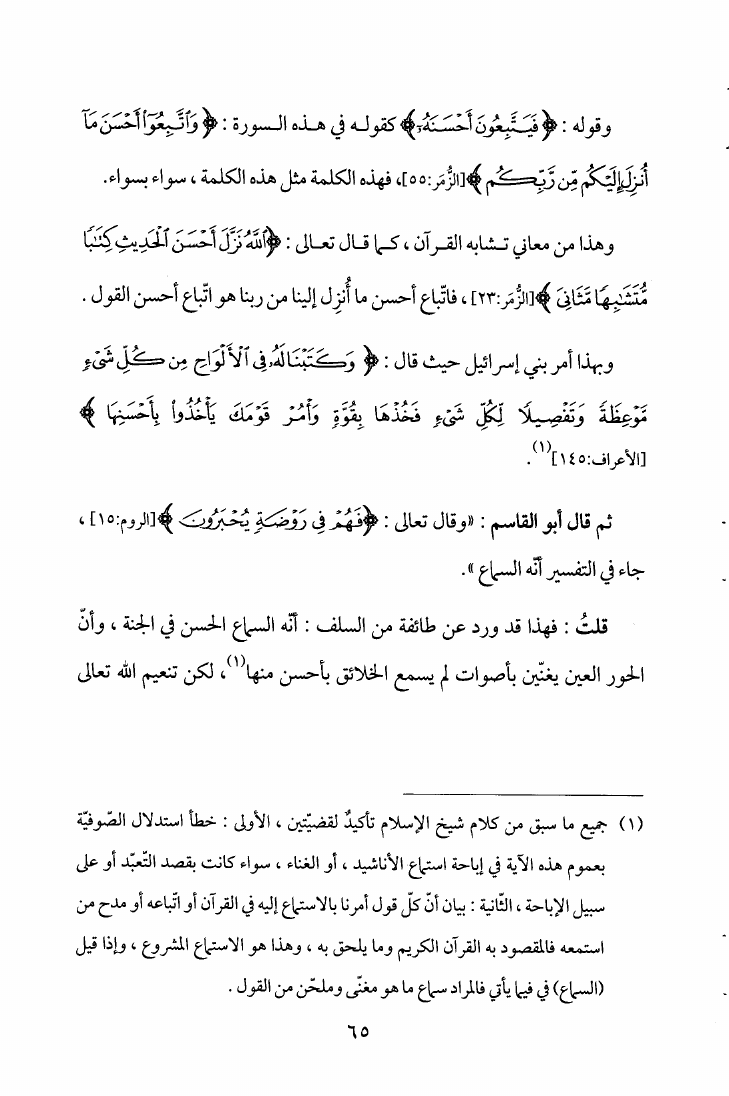 وقوله : ﴿ فَيَتَّبِعُونَ أَحْسَنَهُۥٓ ﴾ كقوله في هذه السورة : ﴿ وَٱتَّبِعُوٓا۟ أَحْسَنَ مَآ
أُنزِلَ إِلَيْكُم مِّن رَّبِّكُم ﴾ [الزُّمَر:٥٥]، فهذه الكلمة مثل هذه الكلمة ، سواء بسواء.
وهذا من معاني تشابه القرآن ، كما قال تعالى : ﴿ٱللَّهُ نَزَّلَ أَحْسَنَ ٱلْحَدِيثِ كِتَٰبًا
مُّتَشَٰبِهًا مَّثَانِىَ ﴾ [الزُّمَر:٢٣] ، فاتّباع أحسن ما أُنزِل إلينا من ربنا هو اتّباع أحسن القول .
وبهذا أمر بني إسرائيل حيث قال : ﴿ وَكَتَبْنَا لَهُۥ فِى ٱلْأَلْوَاحِ مِن كُلِّ شَىْءٍ
مَّوْعِظَةً وَتَفْصِيلًا لِّكُلِّ شَىْءٍ فَخُذْهَا بِقُوَّةٍ وَأْمُرْ قَوْمَكَ يَأْخُذُوا۟ بِأَحْسَنِهَا ﴾
[الأعراف:١٤٥](١) .
ثم قال أبو القاسم : «وقال تعالى : ﴿فَهُمْ فِى رَوْضَةٍ يُحْبَرُونَ ﴾ [الروم:١٥] ،
جاء في التفسير أنّه السماع ».
قلتُ : فهذا قد ورد عن طائفة من السلف : أنّه السماع الحسن في الجنة ، وأنّ
الحور العين يغنّين بأصوات لم يسمع الخلائق بأحسن منها(١)، لكن تنعيم الله تعالى
(١) جميع ما سبق من كلام شيخ الإسلام تأكيدٌ لقضيّتين ، الأولى : خطأ استدلال الصّوفيّة
بعموم هذه الآية في إباحة استماع الأناشيد ، أو الغناء ، سواء كانت بقصد التّعبّد أو على
سبيل الإباحة ، الثّانية : بيان أنّ كلّ قول أمرنا بالاستماع إليه في القرآن أو اتّباعه أو مدح من
استمعه فالمقصود به القرآن الكريم وما يلحق به ، وهذا هو الاستماع المشروع ، وإذا قيل
(السماع) في فيما يأتي فالمراد سماع ما هو مغنّى وملحّن من القول .
٦٥